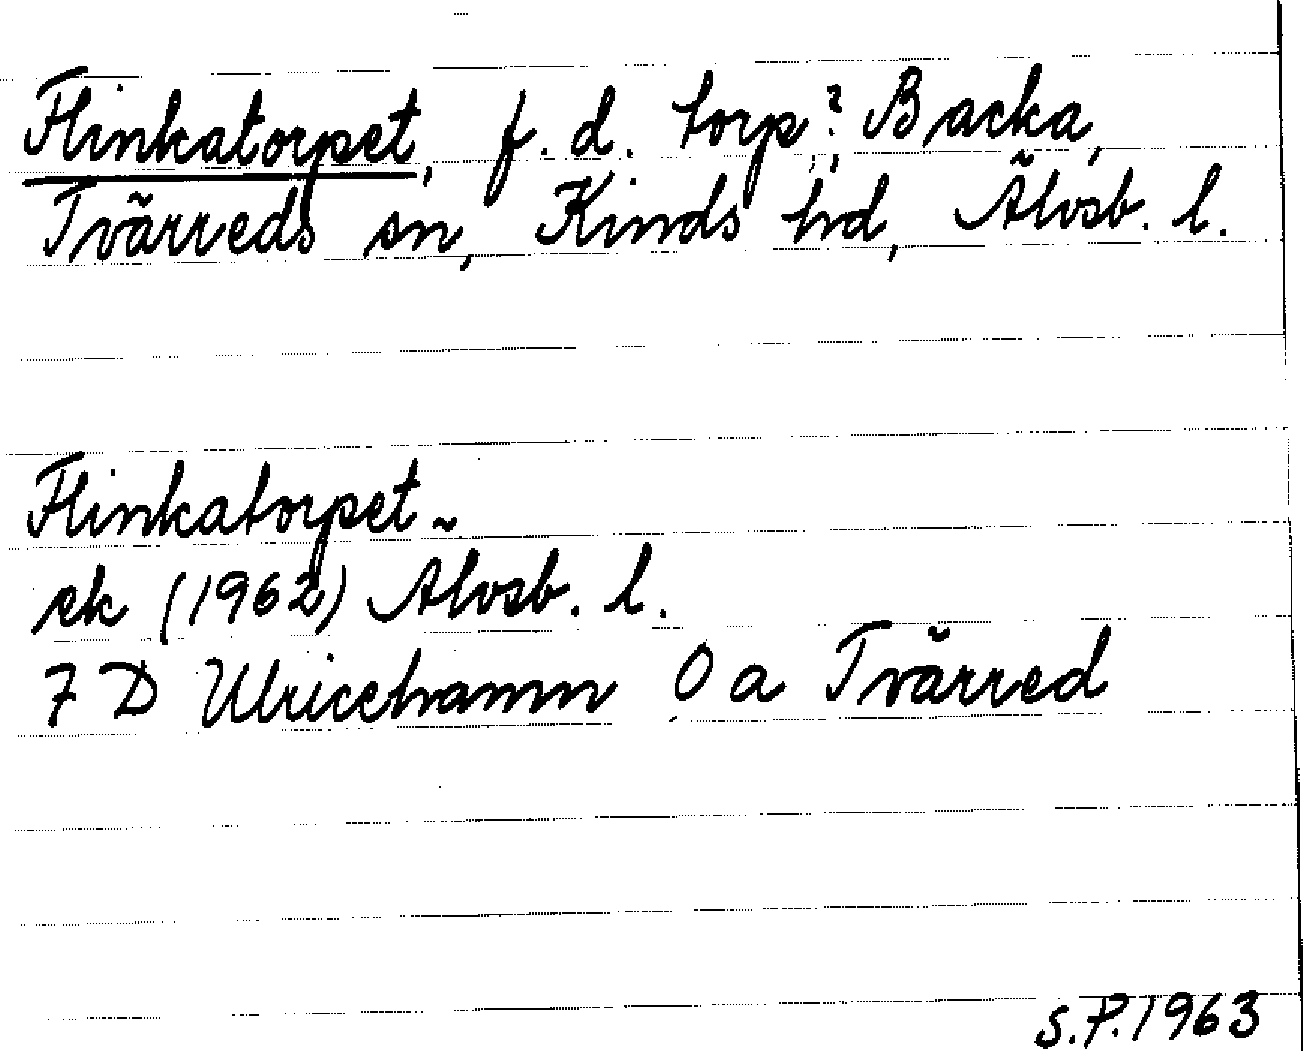 Flinkatorpet, f. d. torp?, Backa,
Tvärreds sn, Kinds hd, Älvsb. l.
Flinkatorpet
ek (1962) Älvsb. l.
7 D Ulricehamn 0 a Tvärred
S.P. 1963